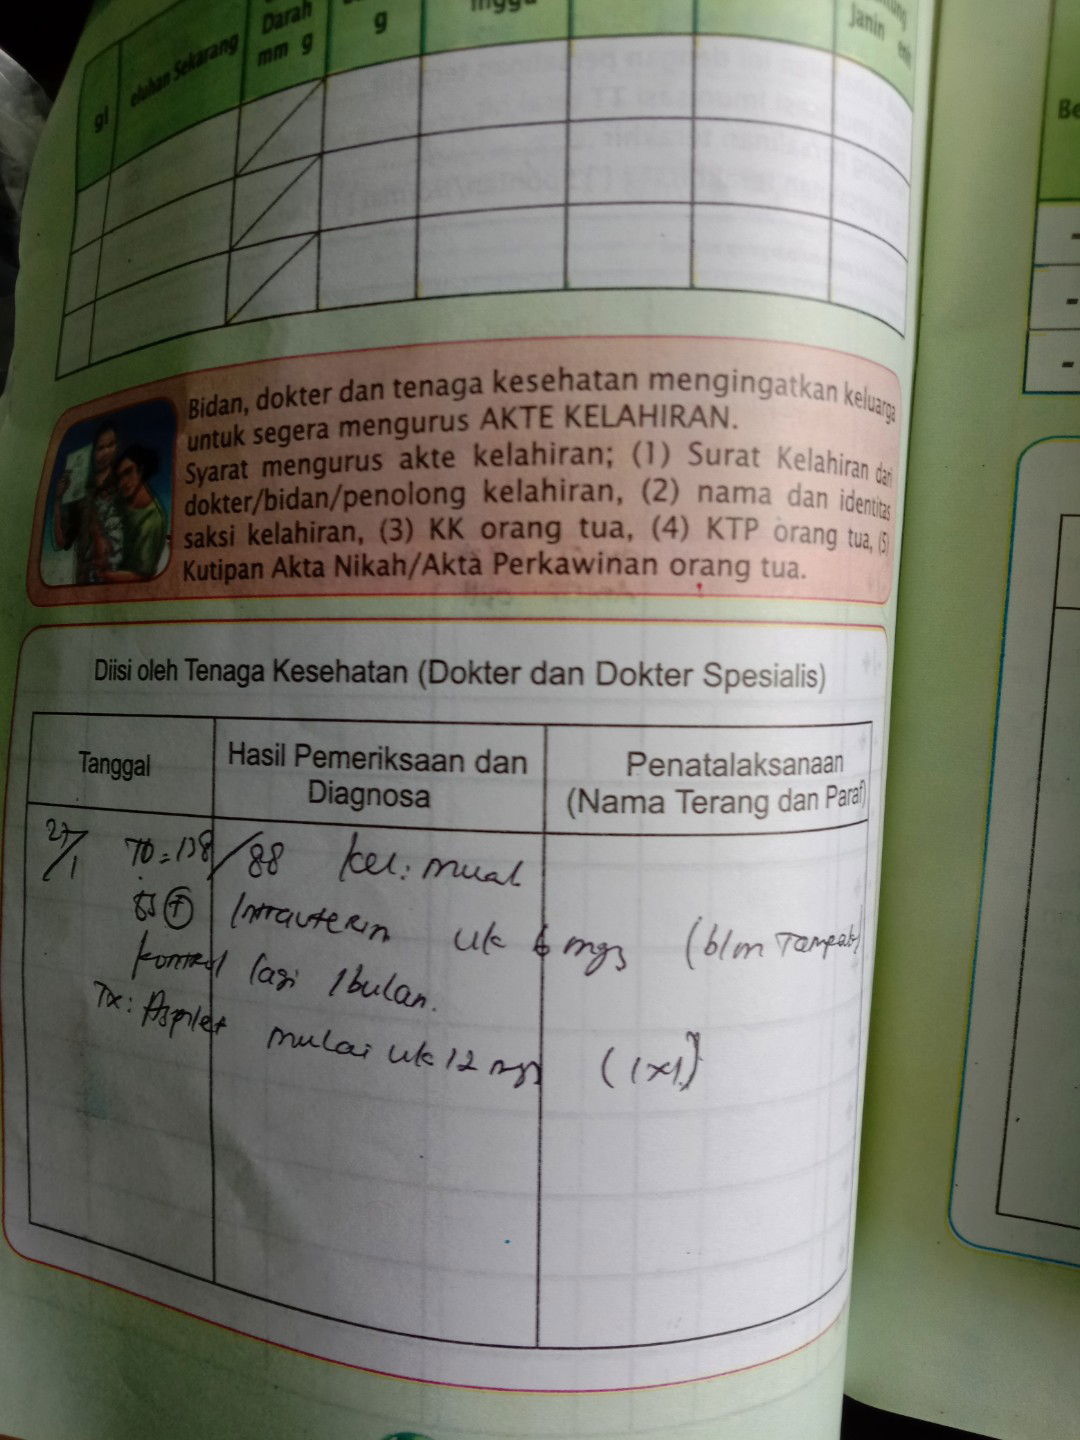 Darah
mm g
g
Janin
gl
eluhan Sekarang
Be
Bidan, dokter dan tenaga kesehatan mengingatkan keluarga
untuk segera mengurus AKTE KELAHIRAN.
Syarat mengurus akte kelahiran; (1) Surat Kelahiran dari
dokter/bidan/penolong kelahiran, (2) nama dan identitas
saksi kelahiran, (3) KK orang tua, (4) KTP orang tua, (5)
Kutipan Akta Nikah/Akta Perkawinan orang tua.
Diisi oleh Tenaga Kesehatan (Dokter dan Dokter Spesialis)
Tanggal
Hasil Pemeriksaan dan
Diagnosa
Penatalaksanaan
(Nama Terang dan Paraf)
27/1 TD = 138/88 kel: mual
(+) Intrauterin uk 6 mgs (blm Tampak)
kontrol lagi 1 bulan.
Tx: Aspilet mulai uk 12 mgs (1x1)